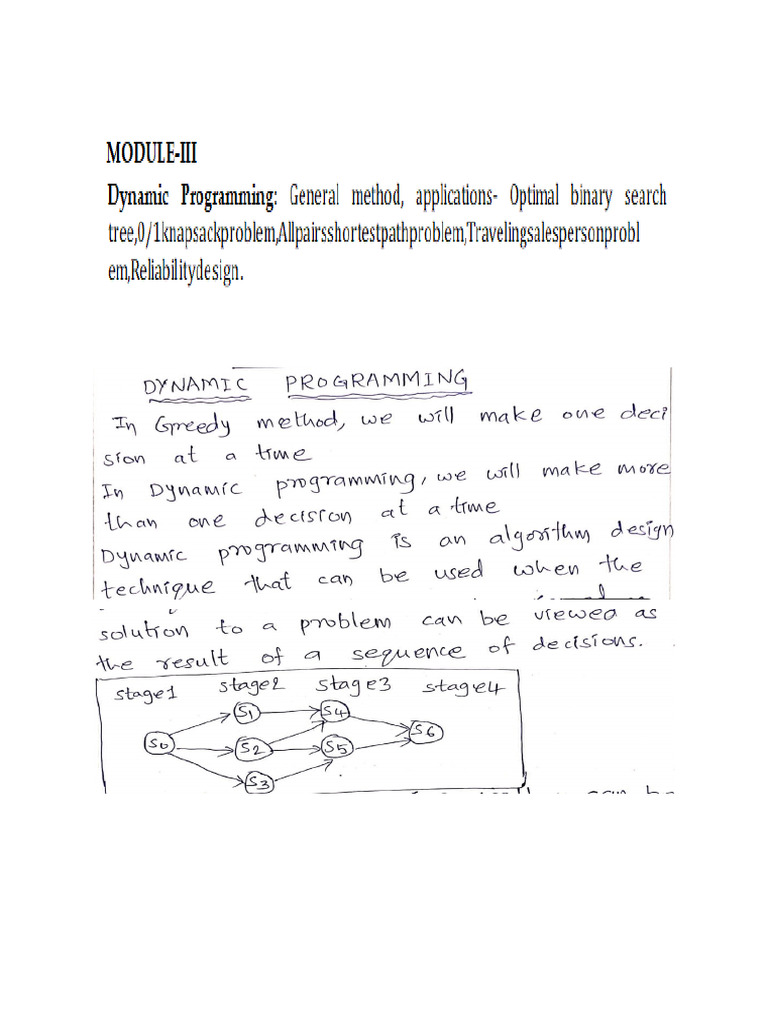 MODULE-III
Dynamic Programming: General method, applications- Optimal binary search
tree,0/1knapsackproblem,Allpairsshortestpathproblem,Travelingsalespersonprobl
em,Reliabilitydesign.
DYNAMIC PROGRAMMING
In Greedy method, we will make one deci
sion at a time
In Dynamic programming, we will make more
than one decision at a time
Dynamic programming is an algorithm design
technique that can be used when the
solution to a problem can be viewed as
the result of a sequence of decisions.
stage1 stage2 stage3 stage4
S1 S4
S0 S2 S5 S6
S3
can be